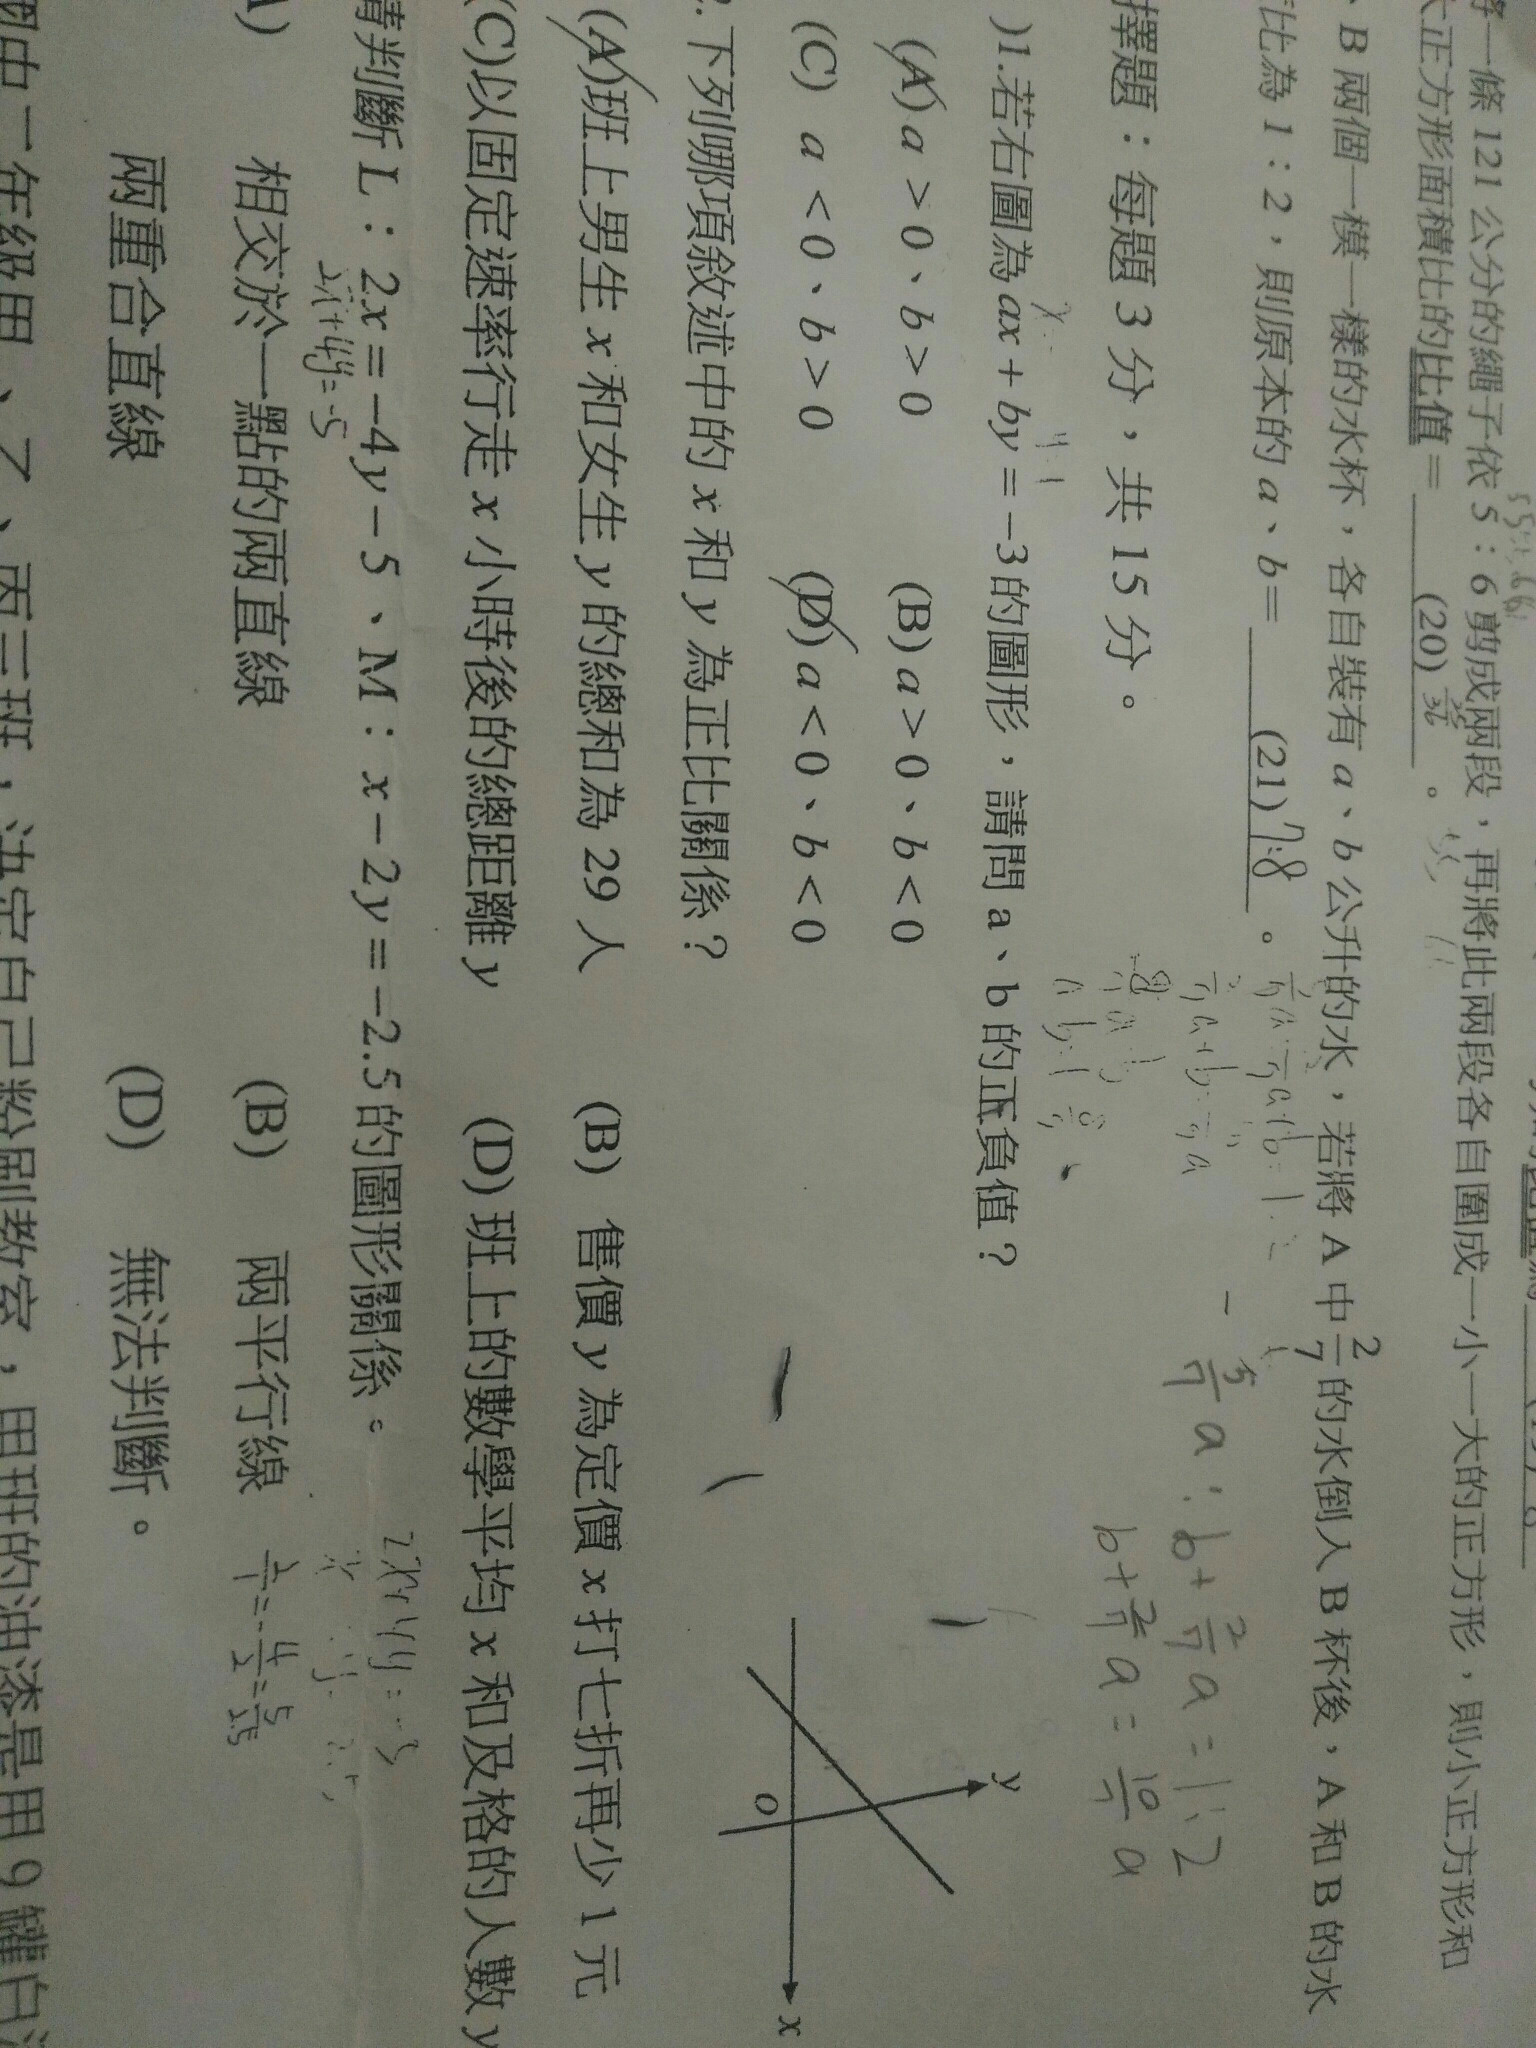 一條 121 公分的繩子依 5：6 剪成兩段，再將此兩段各自圍成一小一大的正方形，則小正方形和
大正方形面積比的比值＝ (20) 25/36 。
、B 兩個一模一樣的水杯，各自裝有 a、b 公升的水，若將 A 中 2/7 的水倒入 B 杯後，A 和 B 的水
比為 1：2，則原本的 a、b＝ (21) 7:8 。
5/7 a : b + 2/7 a = 1 : 2
b + 2/7 a = 10/7 a
擇題：每題 3 分，共 15 分。
)1.若右圖為 ax + by = −3 的圖形，請問 a、b 的正負值？
(A) a > 0、b > 0
(B) a > 0、b < 0
(C) a < 0、b > 0
(D) a < 0、b < 0
y
O
x
.下列哪項敘述中的 x 和 y 為正比關係？
(A)班上男生 x 和女生 y 的總和為 29 人
(B) 售價 y 為定價 x 打七折再少 1 元
(C)以固定速率行走 x 小時後的總距離 y
(D) 班上的數學平均 x 和及格的人數 y
請判斷 L：2x = −4y − 5、M：x − 2y = −2.5 的圖形關係。
2x+4y=-5
2x+4y=-5
相交於一點的兩直線
(B) 兩平行線
兩重合直線
(D) 無法判斷。
國中一年級甲、乙、丙三班，決定自己粉刷教室，甲班的油漆是用 9 罐白